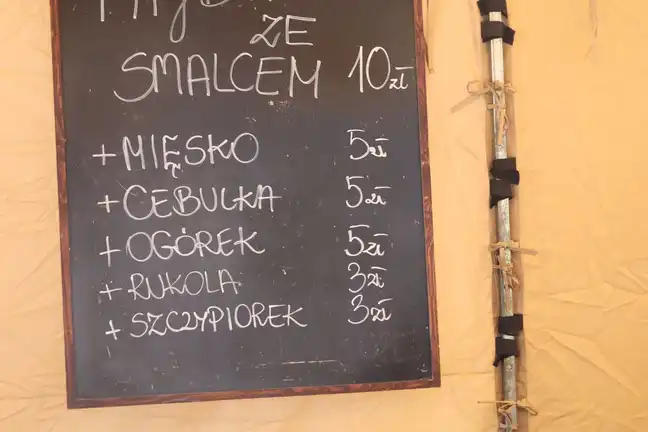 ZE
SMALCEM 10zł
+ MIĘSKO 5zł
+ CEBULKA 5zł
+ OGÓREK 5zł
+ RUKOLA 3zł
+ SZCZYPIOREK 3zł